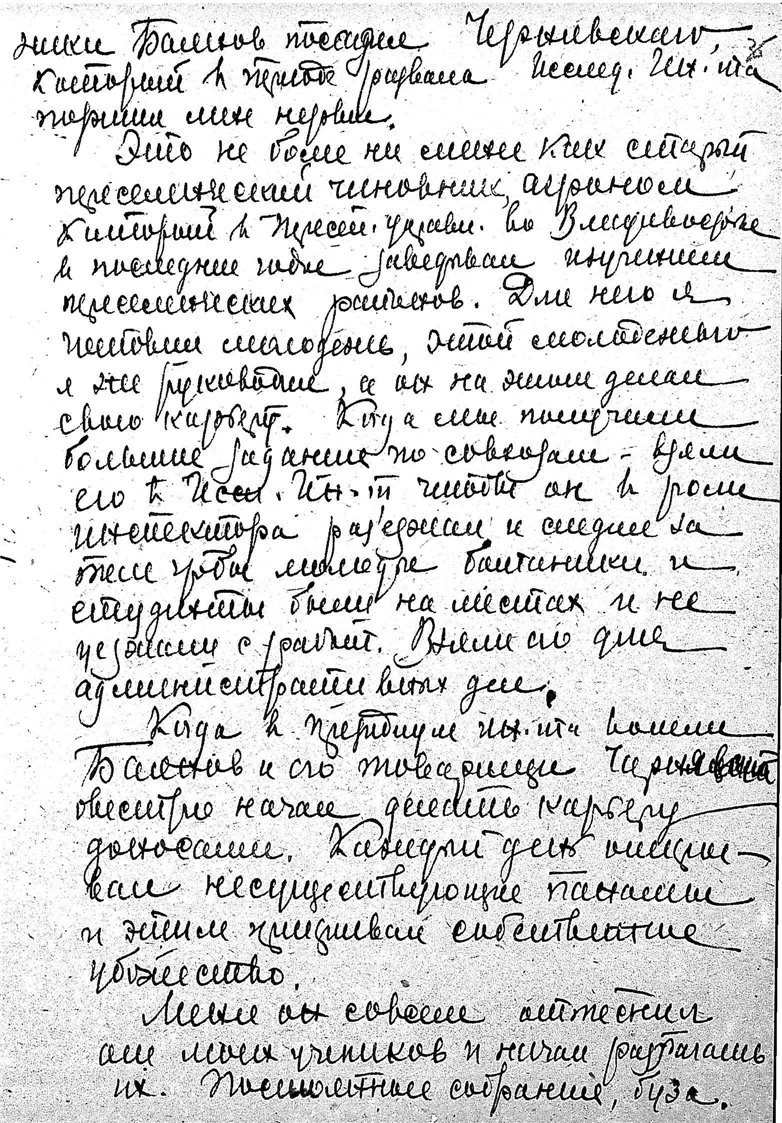 ники Баленов посадил Чернявского,
который в периоде развала Исслед. Ин-та
портил мне нервы.
Это не более ни менее как старый
переселенческий чиновник, агроном
который в Пересел. управл. во Владивостоке
в последние годы заведывал изучением
переселенческих районов. Для него я
готовил молодежь, этой молодежью
я же руководил, а он на этом делал
свою карьеру. Когда мы получили
большие задания по совхозам – взяли
его в Иссл. Ин-т чтобы он в роли
инспектора разъезжал и следил за
тем чтобы молодые ботаники и
студенты были на местах и не
уезжали с работ. Взяли его для
административных дел.
Когда в президиум Ин-та вошли
Баленов и его товарищи Чернявский
быстро начал делать карьеру
доносами. Каждый день открывал
несуществующие панамы
и этим прикрывал собственное
убожество.
Меня он совсем оттеснил
от моих учеников и начал разлагать
их. Посыпались собрания, буза.